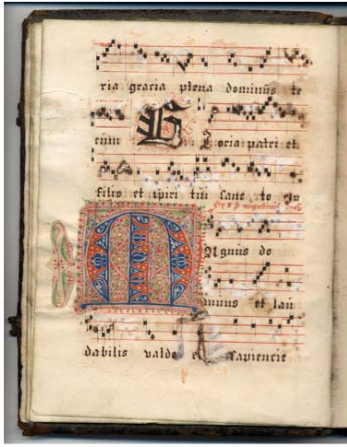 ria gracia plena dominus te
cum Gloria patri et
filio et spiri tui sanc to
Magnus do
minus et lau
dabilis valde et sapiencie